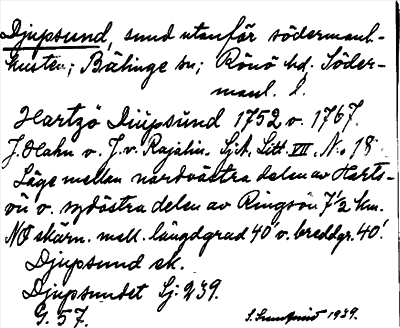 Djupsund, sund utanför södermanl.
kusten; Bälinge sn; Rönö hd. Söder-
manl. l.
Hartzö Diüpsund 1752 o. 1767.
J. Hahn o. J. v. Rajalin. Sjk. Litt. VII. N:o 18.
Läge mellan nordvästra delen av Harts-
ön o. sydöstra delen av Ringsön 7'2 km.
NO skärn. mell. längdgrad 40' o. breddgr. 40'.
Djupsund ek.
Djupsundet Sj: 239.
G. 57.
1939.